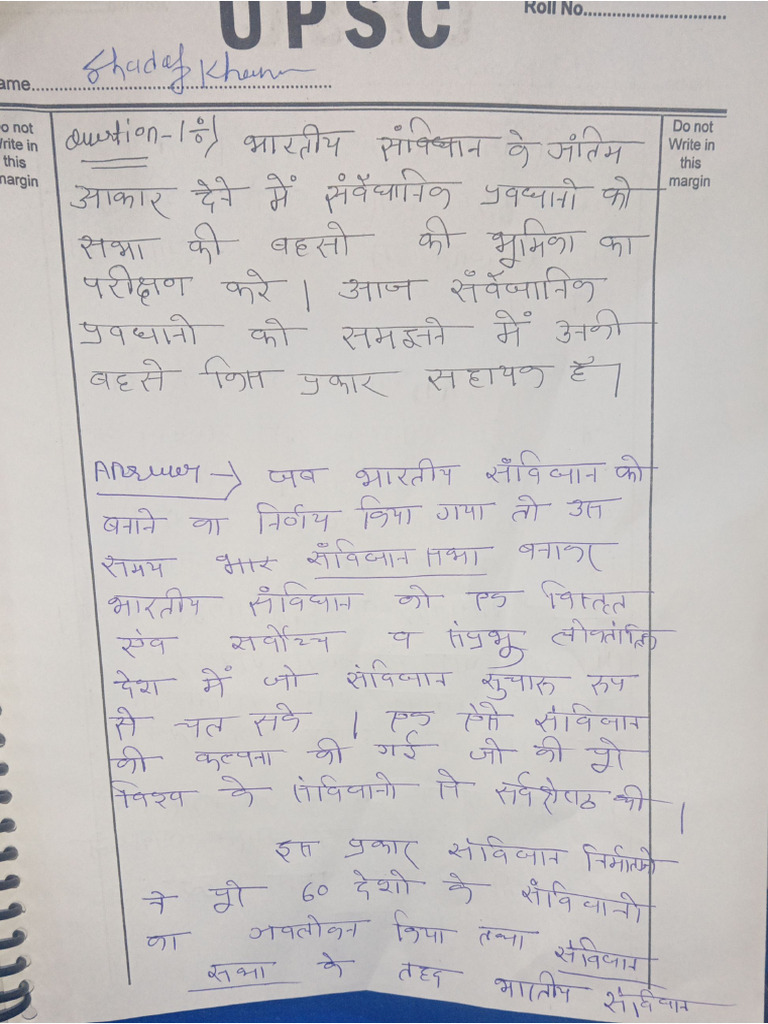 UPSC
Roll No.
ame. Shadaf Khan
o not
rite in
this
nargin
Do not
Write in
this
margin
Question-1%) भारतीय संविधान के अंतिम
आकार देने में संवैधानिक प्रवधानो को
सभा की बहसो की भूमिका का
परीक्षण करे । आज संवैधानिक
प्रवधानो को समझने में उनकी
बहसे किस प्रकार सहायक है ।
Answer → जब भारतीय संविधान को
बनाने का निर्णय किया गया तो उस
समय भार संविधान सभा बनाकर
भारतीय संविधान को एक विस्तृत
एंव सर्वोच्य व संप्रभु लोकतांत्रिक
देश में जो संविधान सुचारू रूप
से चल सके । एक ऐसे संविधान
की कल्पना की गई जो की पूरे
विश्व के संविधानो से सर्वश्रेष्ठ की ।
इस प्रकार संविधान निर्माताओ
ने पूरे 60 देशो के संविधानो
का अवलोकन किया तथा संविधान
सभा के तहद भारतीय संविधान